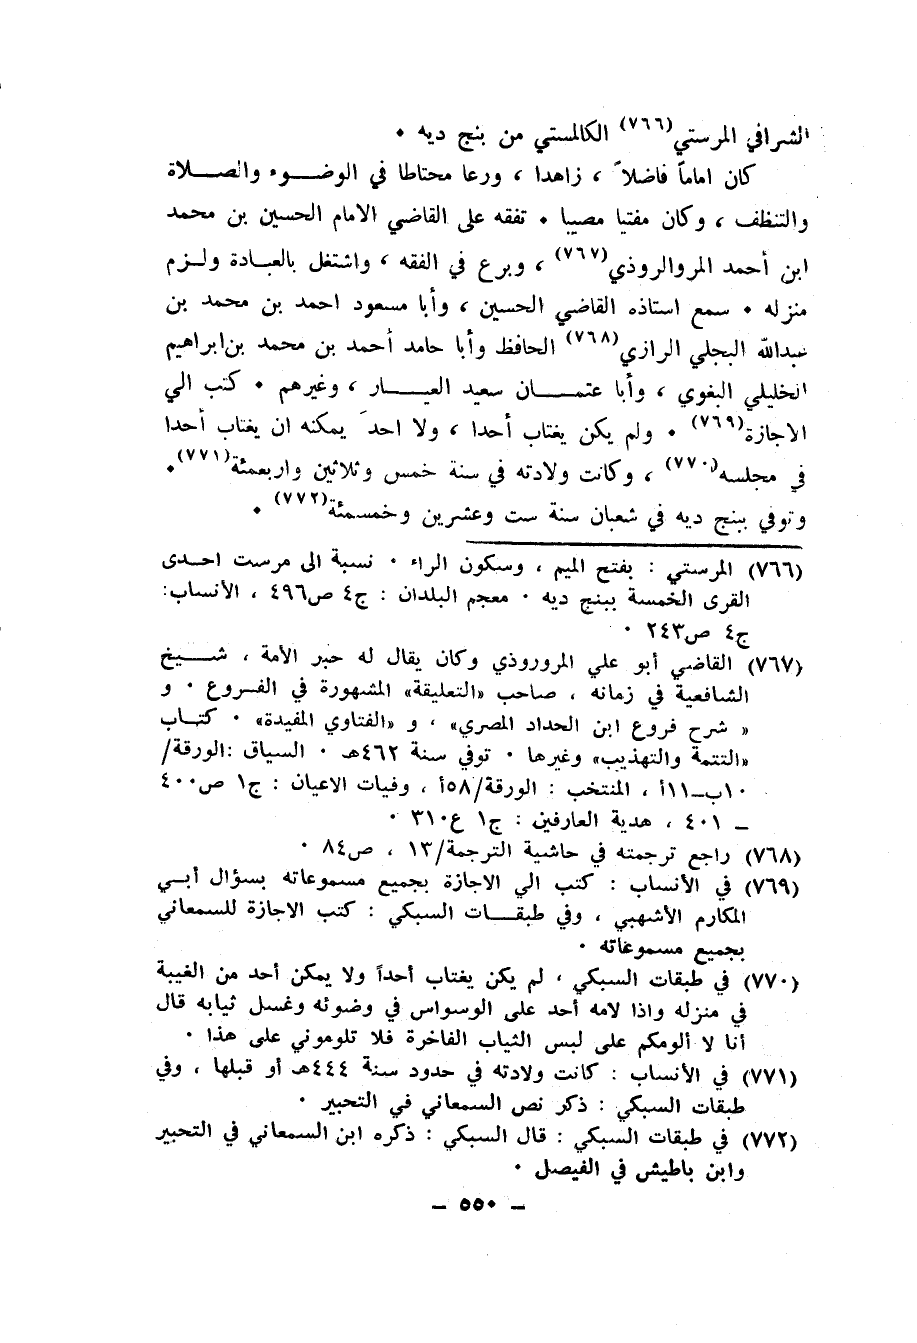 الشرافي المرستي(٧٦٦) الكالمستي من بنج ديه ٠
كان اماماً فاضلاً ، زاهدا ، ورعا محتاطا في الوضوء والصلاة
والتنظف ، وكان مفتيا مصيبا ٠ تفقه على القاضي الامام الحسين بن محمد
ابن أحمد المروالروذي(٧٦٧) ، وبرع في الفقه ، واشتغل بالعبادة ولزم
منزله ٠ سمع استاذه القاضي الحسين ، وأبا مسعود احمد بن محمد بن
عبدالله البجلي الرازي(٧٦٨) الحافظ وأبا حامد أحمد بن محمد بن ابراهيم
الخليلي البغوي ، وأبا عثمان سعيد العيار ، وغيرهم ٠ كتب الي
الاجازة(٧٦٩) ٠ ولم يكن يغتاب أحدا ، ولا احدَ يمكنه ان يغتاب أحدا
في مجلسه(٧٧٠) ، وكانت ولادته في سنة خمس وثلاثين واربعمئة(٧٧١) ٠
وتوفي ببنج ديه في شعبان سنة ست وعشرين وخمسمئة(٧٧٢) ٠
(٧٦٦) المرستي : بفتح الميم ، وسكون الراء ٠ نسبة الى مرست احدى
القرى الخمسة ببنج ديه ٠ معجم البلدان : ج٤ ص٤٩٦ ، الأنساب:
ج٤ ص٢٤٣ ٠
(٧٦٧) القاضي أبو علي المروروذي وكان يقال له حبر الأمة ، شيخ
الشافعية في زمانه ، صاحب «التعليقة» المشهورة في الفروع ٠ و
« شرح فروع ابن الحداد المصري» ، و «الفتاوي المفيدة» ٠ كتاب
«التتمة والتهذيب» وغيرها ٠ توفي سنة ٤٦٢هـ ٠ السياق :الورقة/
١٠ب–١١أ ، المنتخب : الورقة/٥٨أ ، وفيات الاعيان : ج١ ص٤٠٠
– ٤٠١ ، هدية العارفين : ج١ ع٣١٠ ٠
(٧٦٨) راجع ترجمته في حاشية الترجمة/١٣ ، ص٨٤ ٠
(٧٦٩) في الأنساب : كتب الي الاجازة بجميع مسموعاته بسؤال أبي
المكارم الأشهبي ، وفي طبقات السبكي : كتب الاجازة للسمعاني
بجميع مسموعاته ٠
(٧٧٠) في طبقات السبكي ، لم يكن يغتاب أحداً ولا يمكن أحد من الغيبة
في منزله واذا لامه أحد على الوسواس في وضوئه وغسل ثيابه قال
أنا لا ألومكم على لبس الثياب الفاخرة فلا تلوموني على هذا ٠
(٧٧١) في الأنساب : كانت ولادته في حدود سنة ٤٤٤هـ أو قبلها ، وفي
طبقات السبكي : ذكر نص السمعاني في التحبير ٠
(٧٧٢) في طبقات السبكي : قال السبكي : ذكره ابن السمعاني في التحبير
وابن باطيش في الفيصل ٠
– ٥٥٠ –